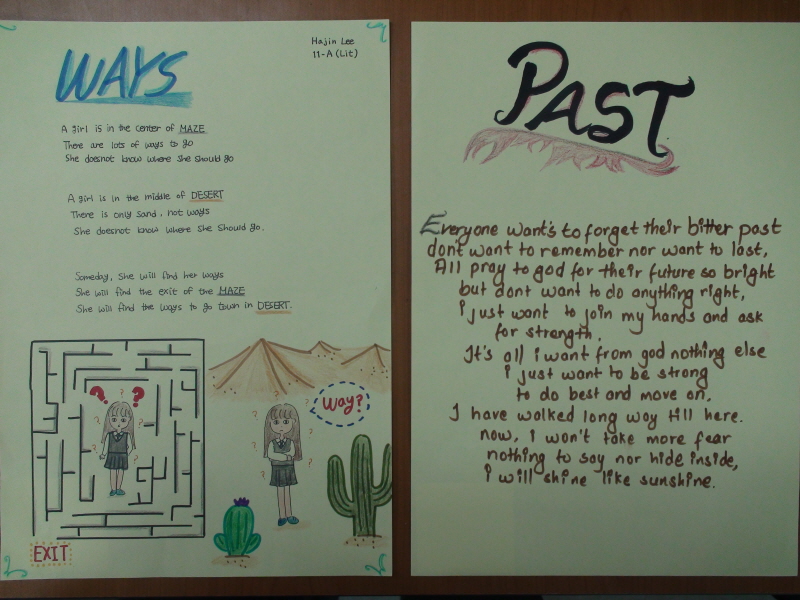 WAYS
Hajin Lee
11-A (Lit)
A girl is in the center of MAZE
There are lots of ways to go
She doesnot know where she should go
A girl is in the middle of DESERT
There is only sand, not ways
She doesnot know where she should go.
Someday, she will find her ways
She will find the exit of the MAZE
She will find the ways to go town in DESERT.
? ?
way?
EXIT
PAST
Everyone want's to forget their bitter past
don't want to remember nor want to last,
All pray to god for their future so bright
but dont want to do anything right,
i just want to join my hands and ask
for strength.
It's all i want from god nothing else
i just want to be strong
to do best and move on.
I have walked long way till here.
now, i won't take more fear
nothing to say nor hide inside,
i will shine like sunshine.